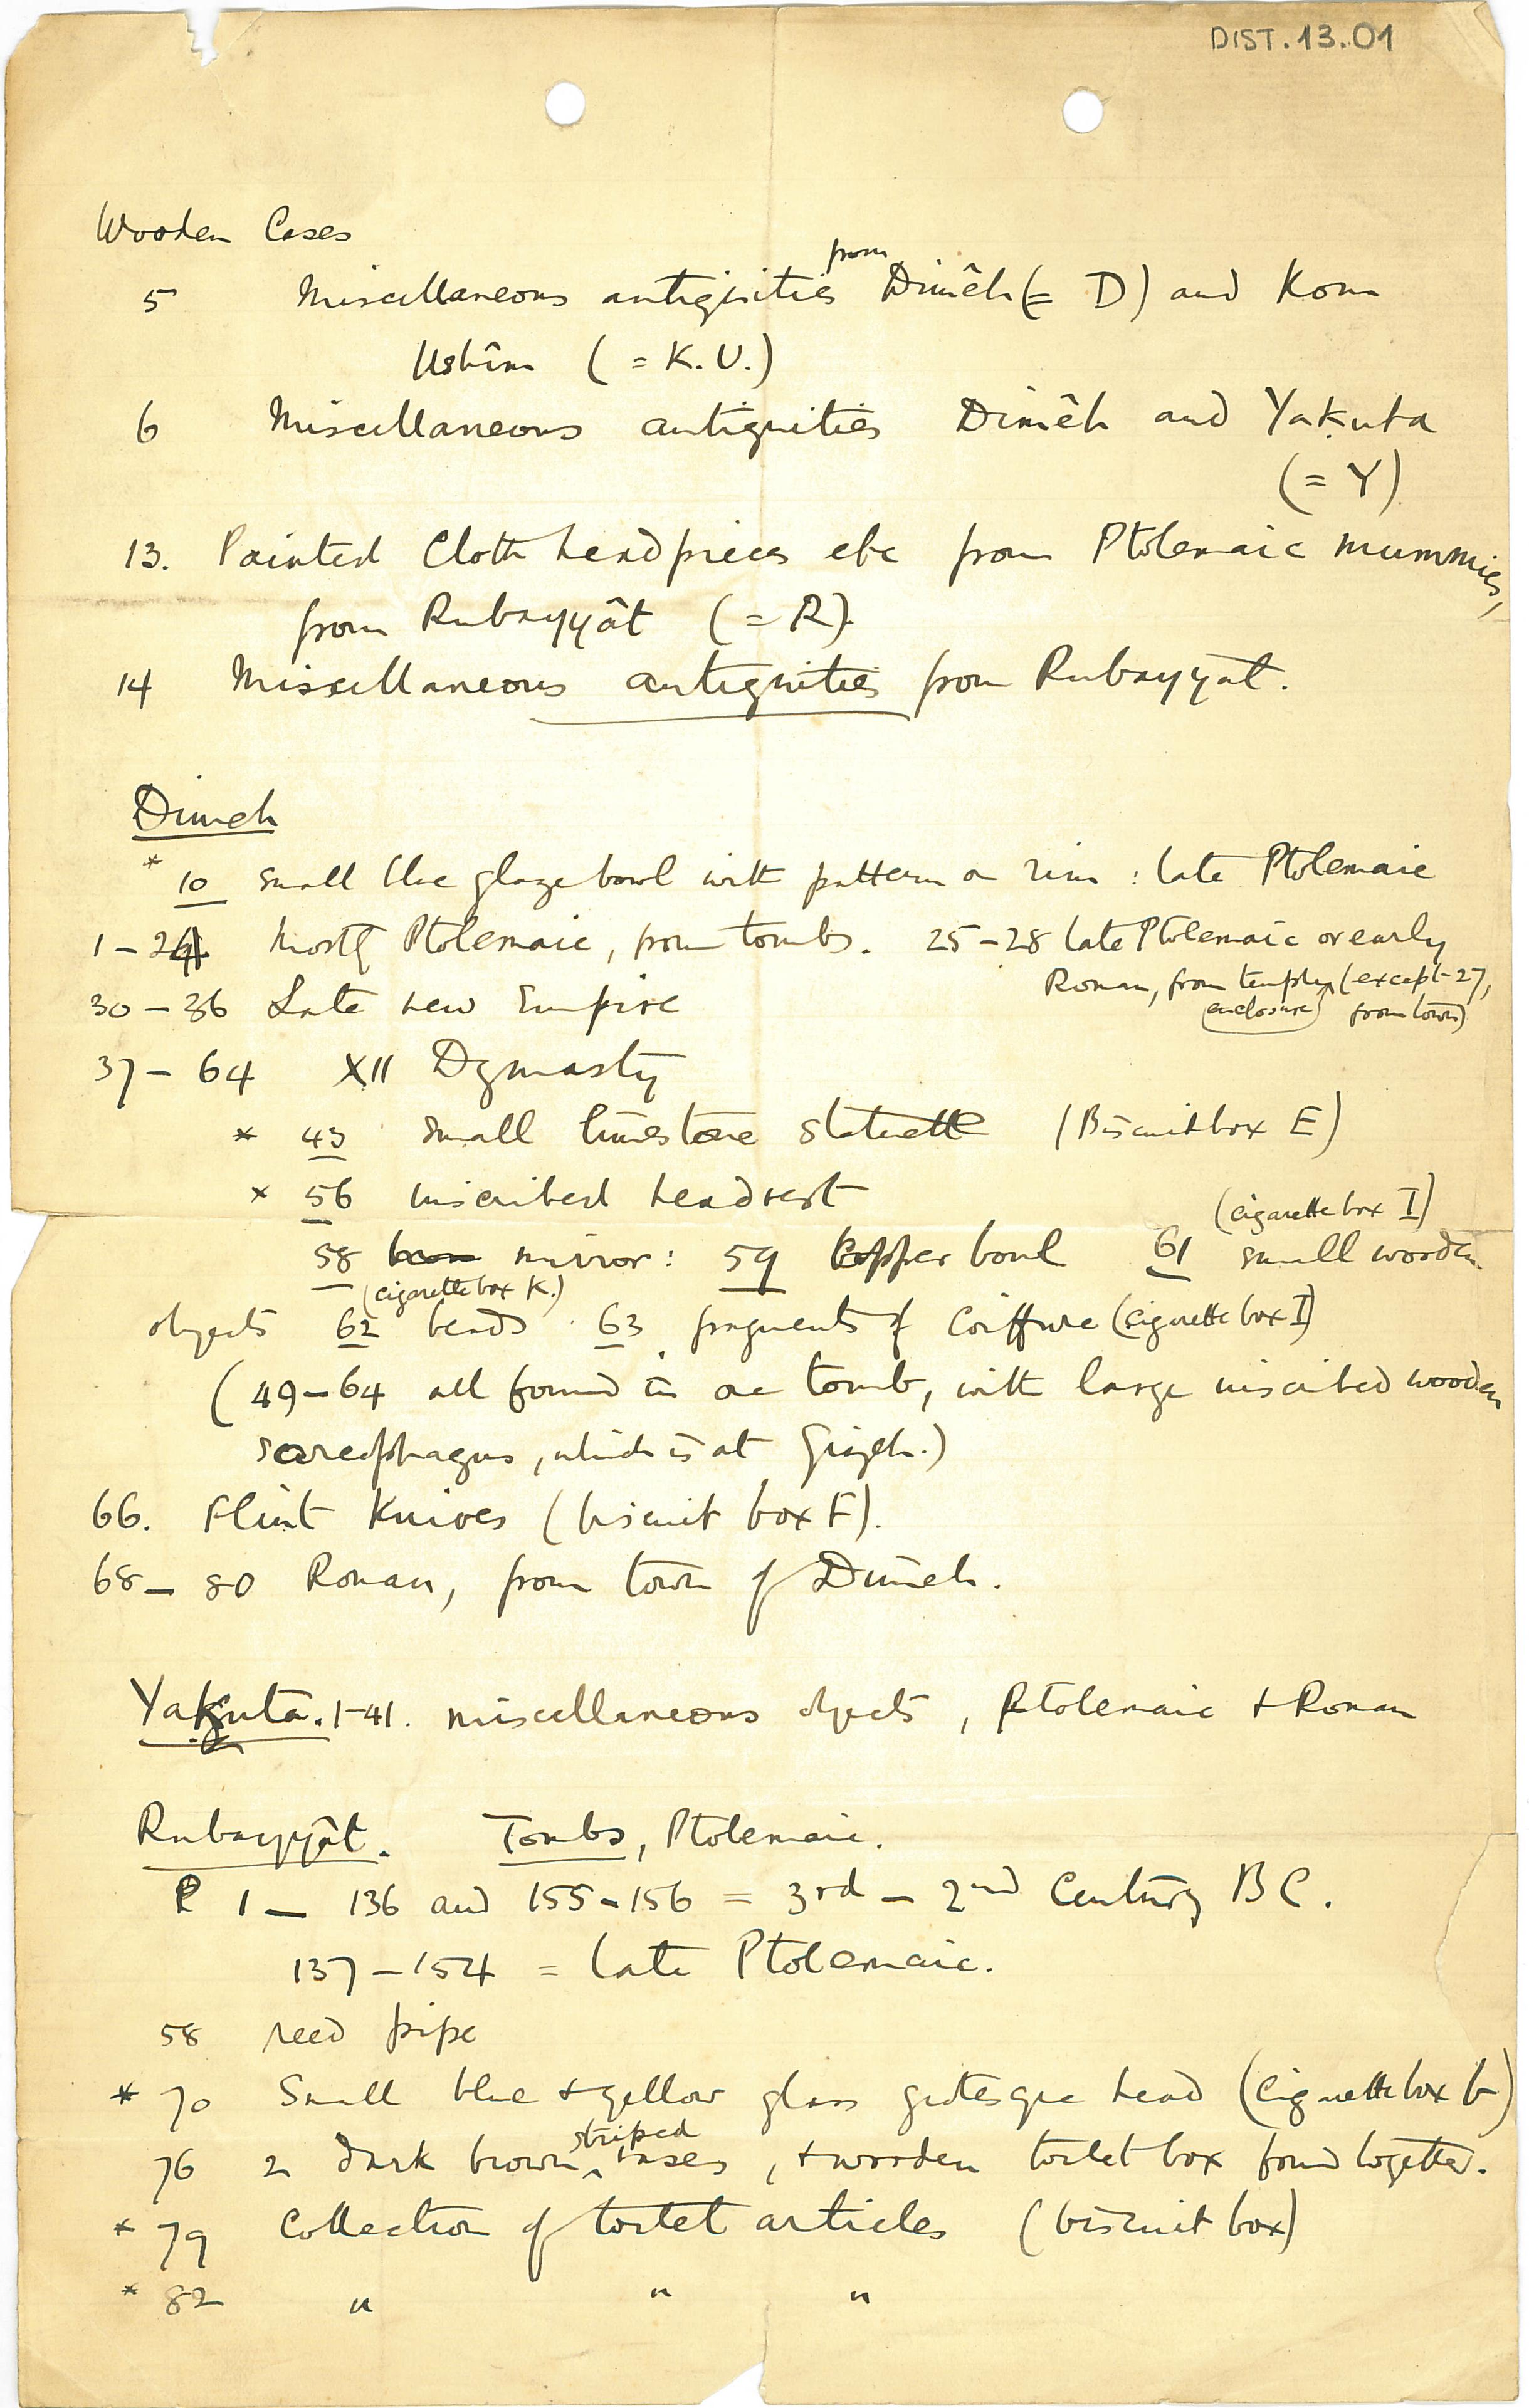 DIST.13.01
Wooden Cases
5 Miscellaneous antiquities from Dimêh (= D) and Kom
Ushîm (= K.U.)
6 Miscellaneous antiquities Dimêh and Yaḳuta
(= Y)
13. Painted Cloth headpieces etc from Ptolemaic mummies,
from Rubayyât (= R).
14 Miscellaneous antiquities from Rubayyât.
Dimeh
* 10 small blue glaze bowl with pattern on rim : late Ptolemaic
1 – 24 mostly Ptolemaic, from tombs. 25 – 28 late Ptolemaic or early
Roman, from temple enclosure (except 27, from town)
30 – 36 Late new Empire
37 – 64 XII Dynasty
* 43 small limestone statuette (Biscuit box E)
* 56 inscribed headrest
(cigarette box I)
58 mirror : 59 Copper bowl 61 small wooden
(cigarette box K.)
objects 62 beads . 63 fragments of coiffure (cigarette box I)
(49 – 64 all found in one tomb, with large inscribed wooden
sarcophagus, which is at Gizeh.)
66. Flint Knives (biscuit box F).
68 – 80 Roman, from town of Dimeh.
Yaḳuta. 1-41. miscellaneous objects, Ptolemaic + Roman
Rubayyât. Tombs, Ptolemaic.
R 1 – 136 and 155-156 = 3rd – 2nd Century BC.
137 – 154 = late Ptolemaic.
58 reed pipe
* 70 Small blue + yellow glass grotesque head (cigarette box b)
76 2 dark brown striped vases, + wooden toilet box found together.
* 79 Collection of toilet articles (biscuit box)
* 82 " " "